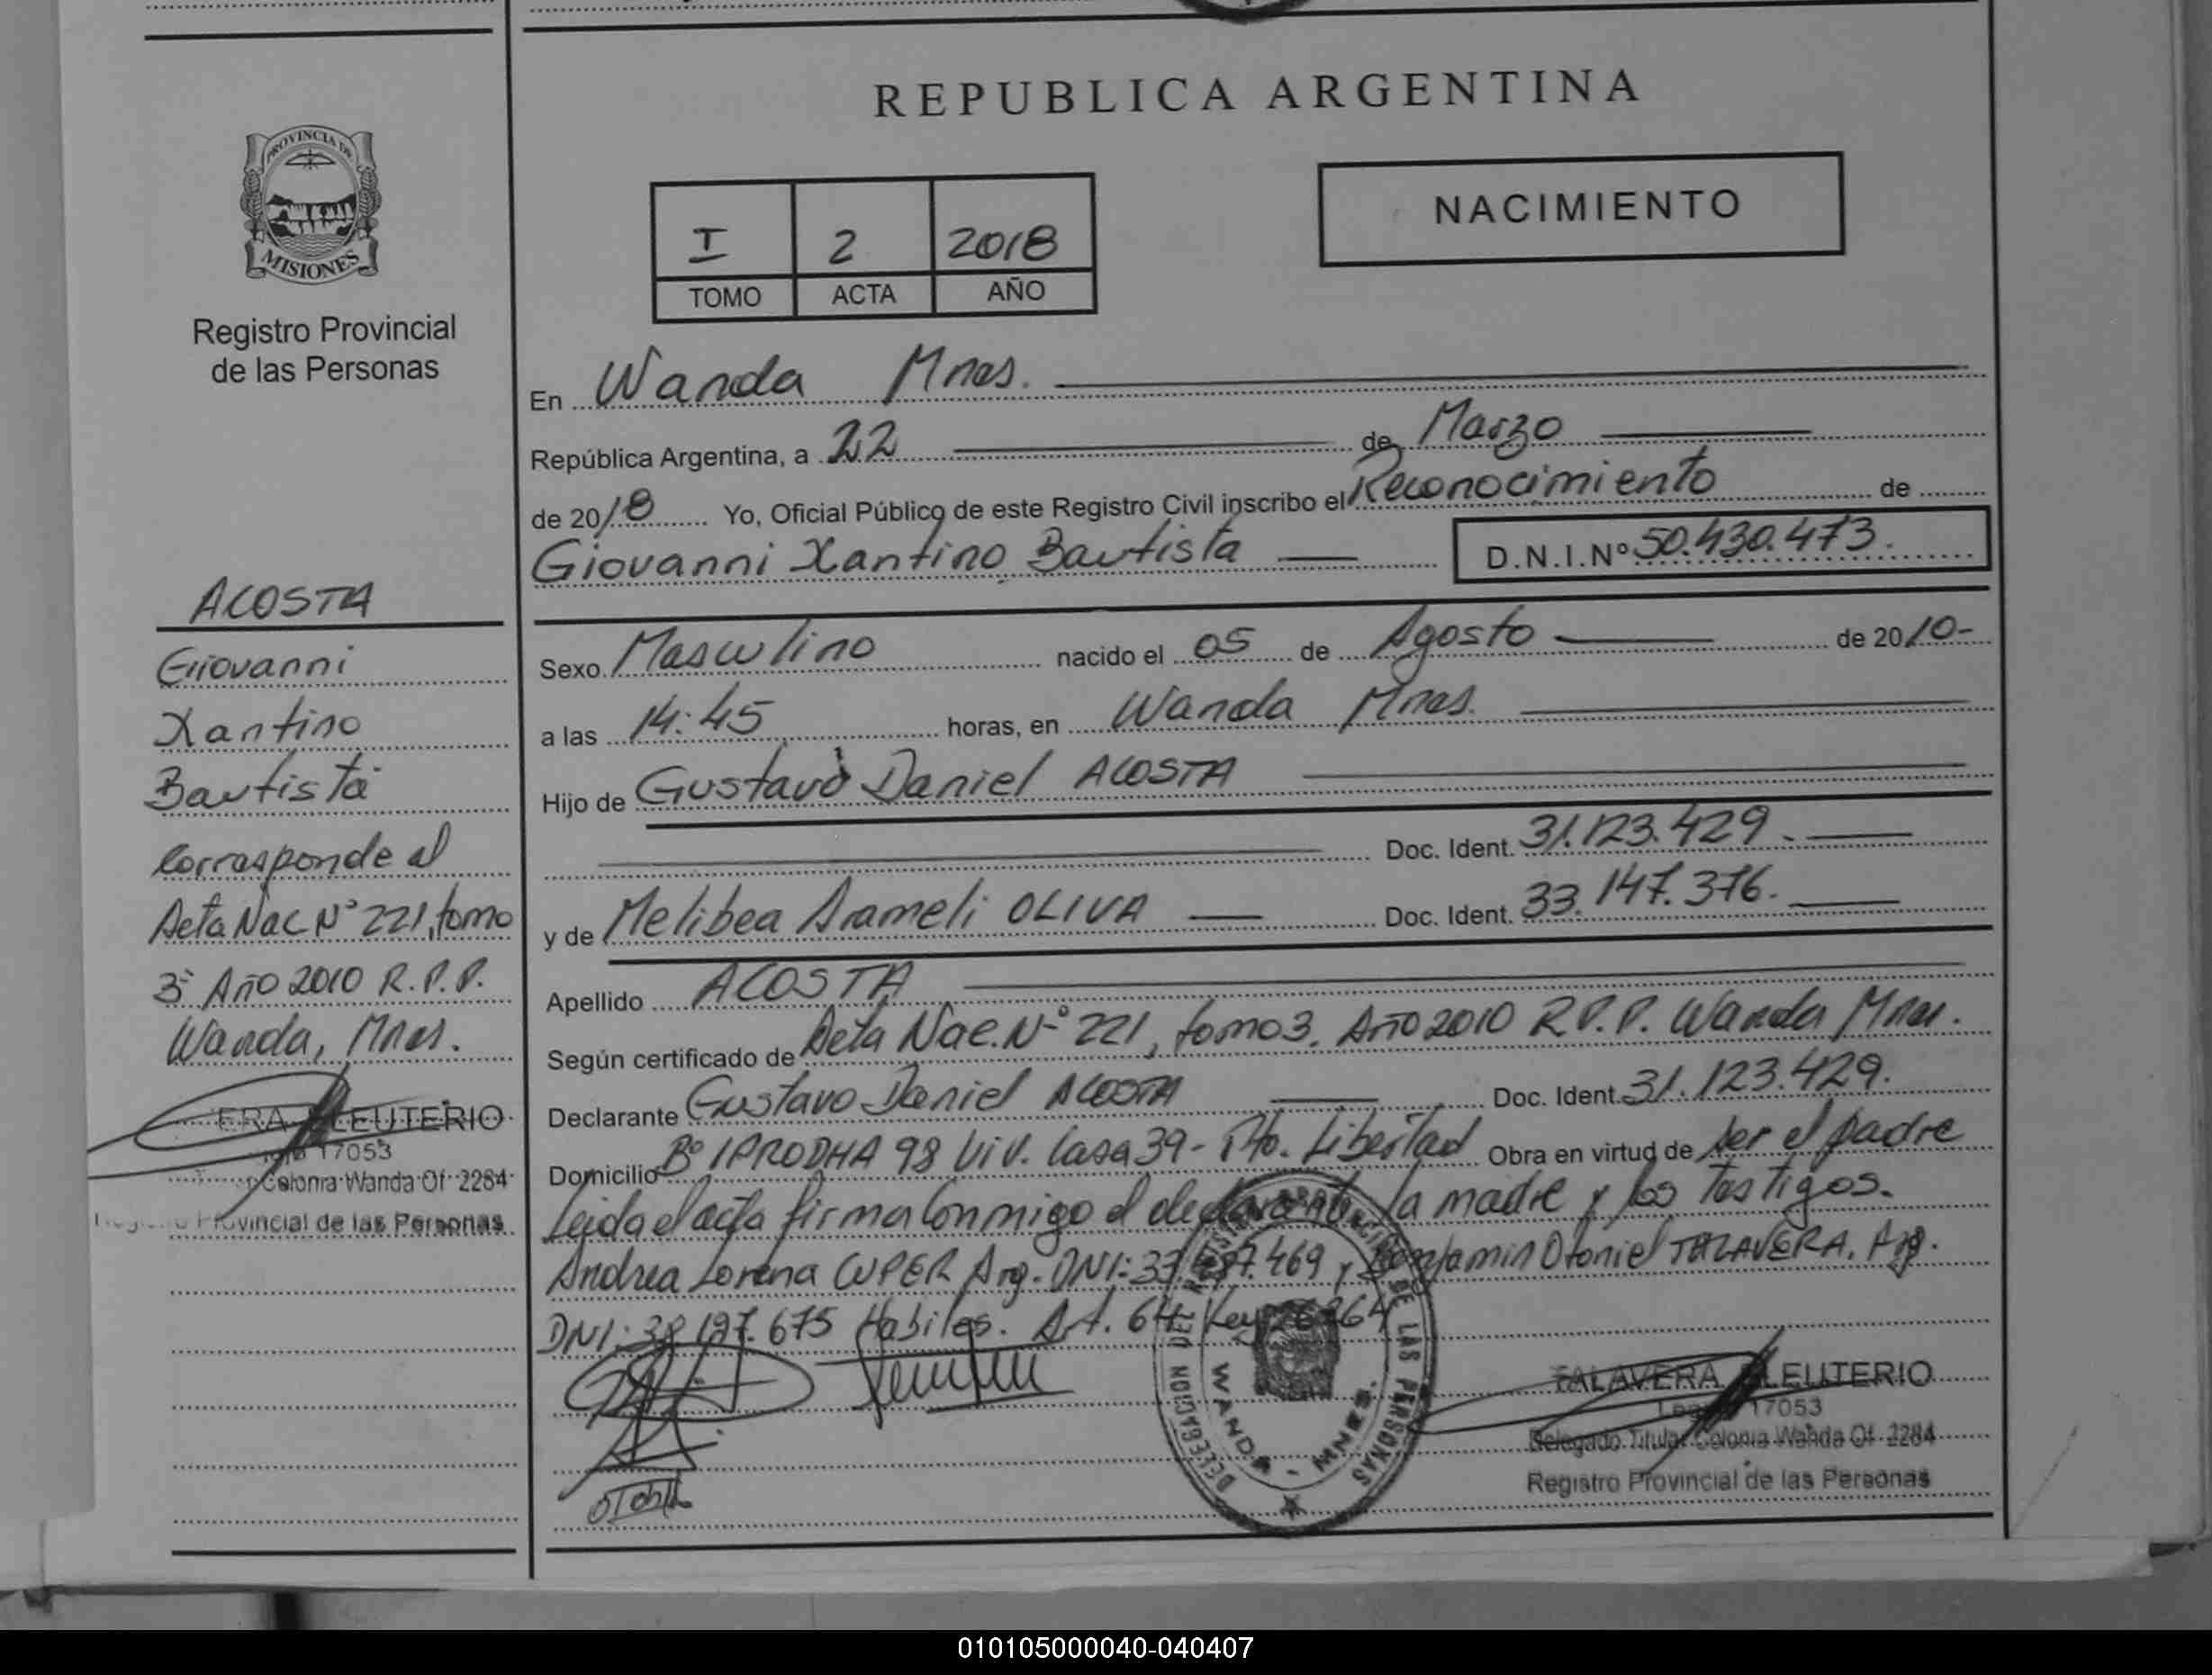 REPUBLICA ARGENTINA
PROVINCIA DE
MISIONES
Registro Provincial
de las Personas
NACIMIENTO
I 2 2018
TOMO ACTA AÑO
En Wanda Mnes.
República Argentina, a 22 de Marzo
de 2018 Yo, Oficial Público de este Registro Civil inscribo el Reconocimiento de
Giovanni Xantino Bautista D.N.I.Nº 50.430.473.
Sexo Masculino nacido el 05 de Agosto de 2010-
a las 14:45 horas, en Wanda Mnes.
Hijo de Gustavo Daniel ACOSTA
Doc. Ident. 31.123.429.
y de Melibea Arameli OLIVA Doc. Ident. 33.147.376.
Apellido ACOSTA
Según certificado de Acta Nac. Nº 221, tomo 3. Año 2010 R.P.P. Wanda Mnes.
Declarante Gustavo Daniel ACOSTA Doc. Ident. 31.123.429.
Domicilio Bº IPRODHA 98 Viv. Casa 39 - Pto. Libertad Obra en virtud de ser el padre
Leida el acta firma conmigo el declarante, la madre y los testigos.
Andrea Lorena CUPER Arg. DNI: 469 y Benjamin Otoniel TALAVERA. Arg.
DNI: 38.197.675 Habiles. Art. 64 Ley
ACOSTA
Giovanni
Xantino
Bautista
Corresponde al
Acta Nac Nº 221, tomo
3º Año 2010 R.P.P.
Wanda, Mnes.
ERA ELEUTERIO
17053
Colonia Wanda Of. 2284
Provincial de las Personas
DELEGACION DEL REGISTRO PROVINCIAL DE LAS PERSONAS
WANDA - MNES.
TALAVERA ELEUTERIO
17053
Delegado Titular Colonia Wanda Of. 2284
Registro Provincial de las Personas
010105000040-040407